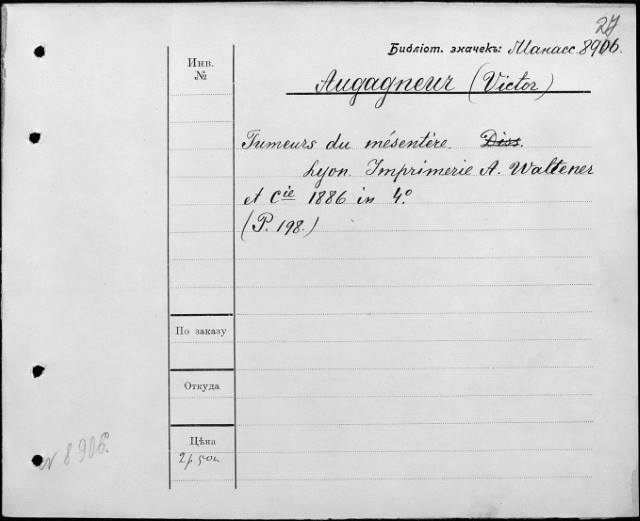 27
Библіот. значекъ: Манасс. 8906.
Инв.
№
Augagneur (Victor)
Tumeurs du mésentère. Diss.
Lyon. Imprimerie A. Waltener
et Cie 1886 in 4.°
(P. 198.)
По заказу
Откуда
Цѣна
2 р. 50 к
№ 8906.